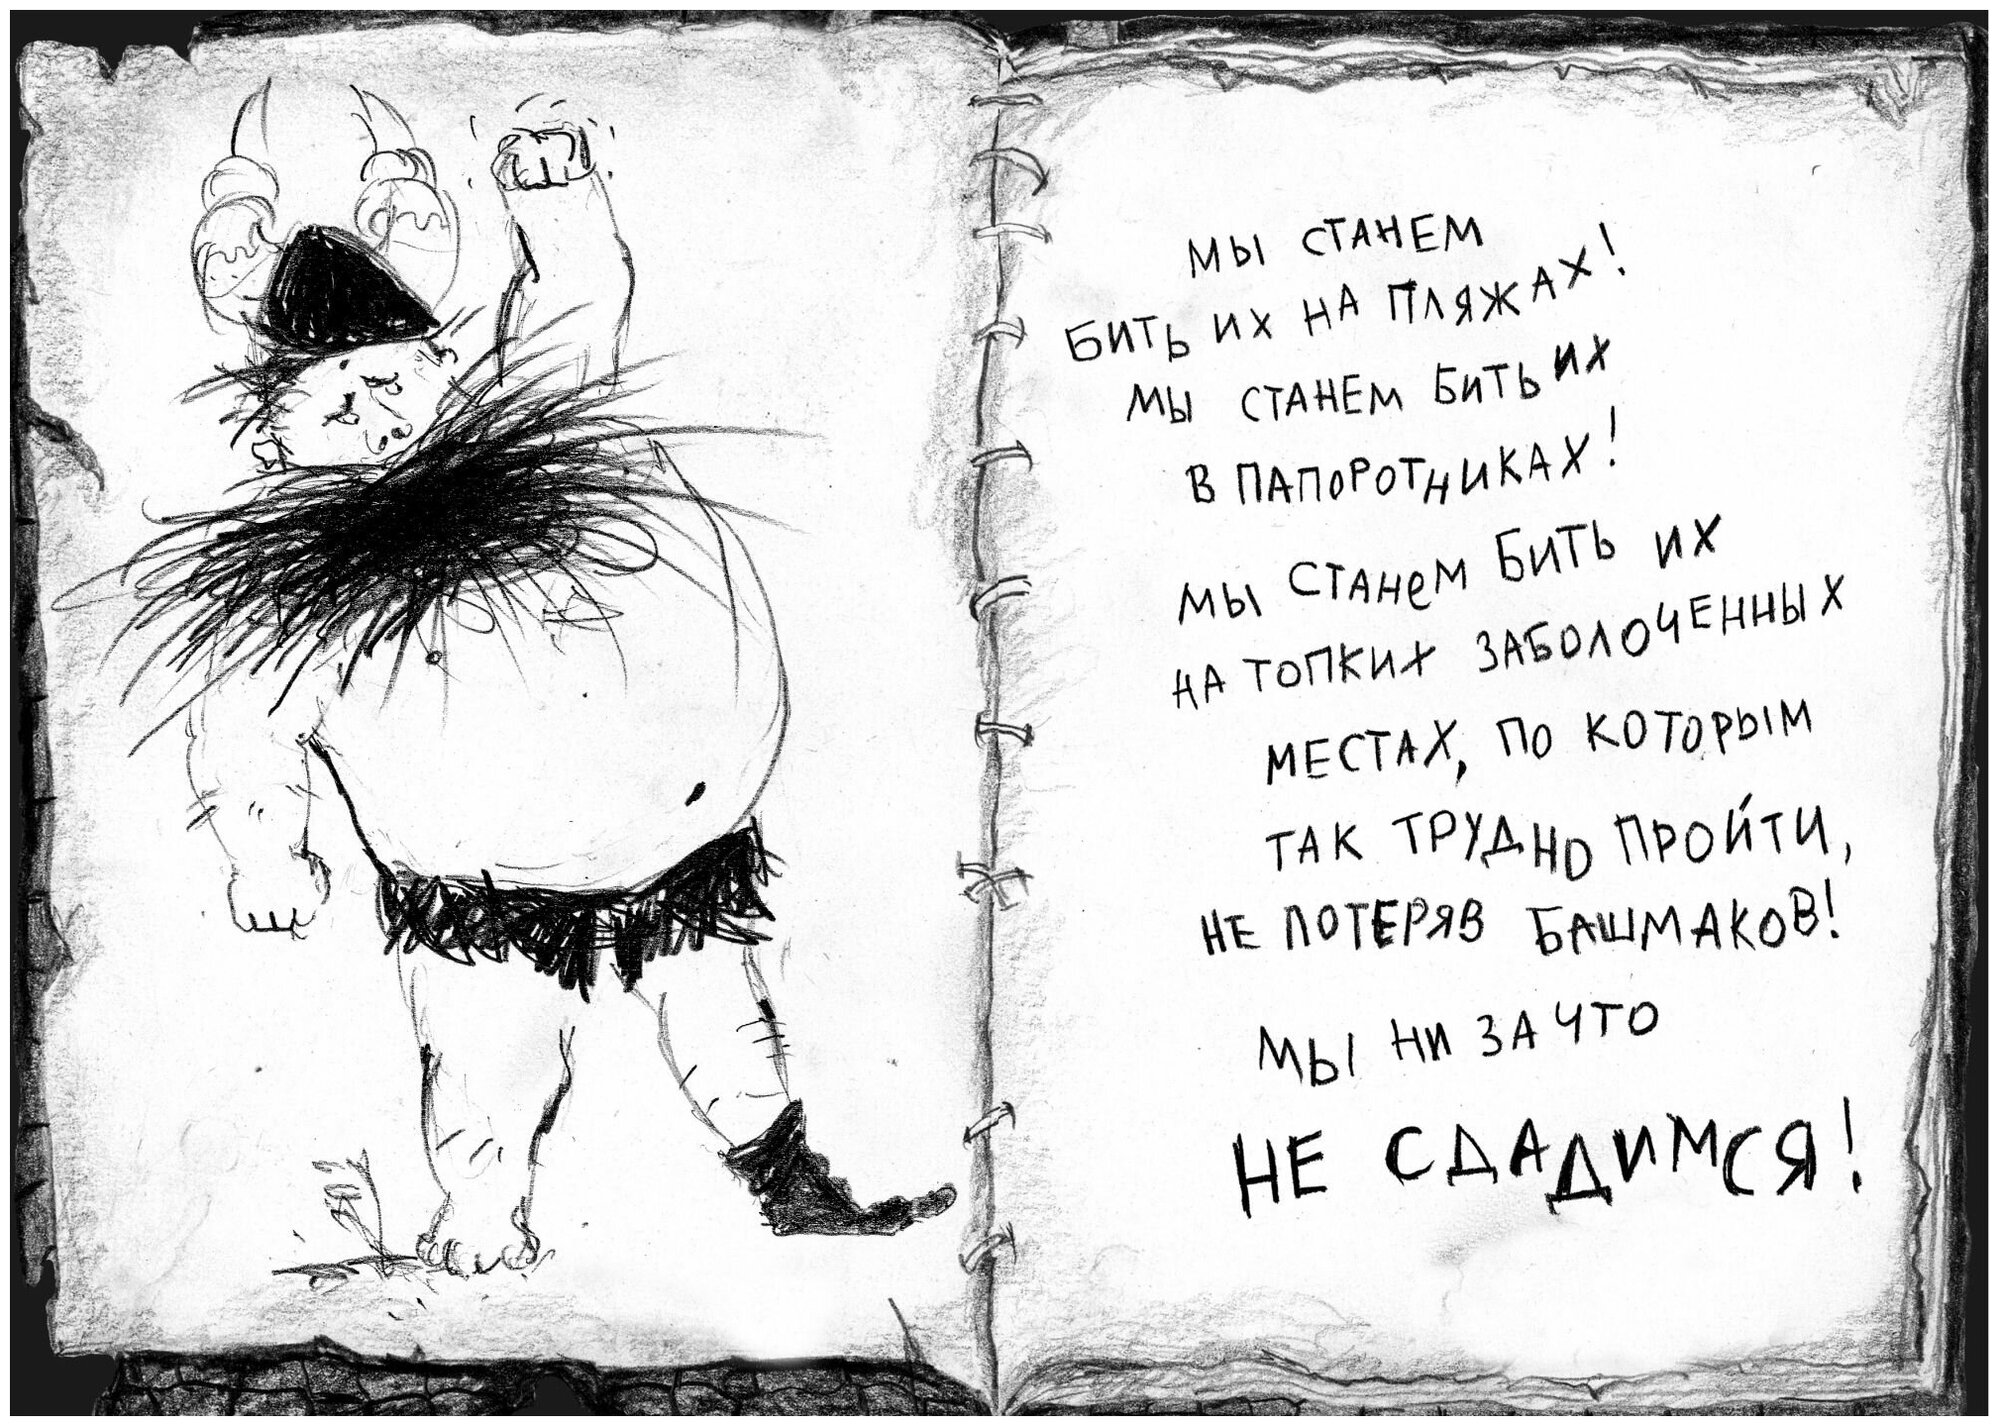 МЫ СТАНЕМ
БИТЬ ИХ НА ПЛЯЖАХ!
МЫ СТАНЕМ БИТЬ ИХ
В ПАПОРОТНИКАХ!
МЫ СТАНеМ БИТЬ ИХ
НА ТОПКИХ ЗАБОЛОЧЕННЫХ
МЕСТАХ, ПО КОТОРЫМ
ТАК ТРУДНО ПРОЙТИ,
НЕ ПОТЕРЯВ БАШМАКОВ!
МЫ НИ ЗА ЧТО
НЕ СДАДИМСЯ!